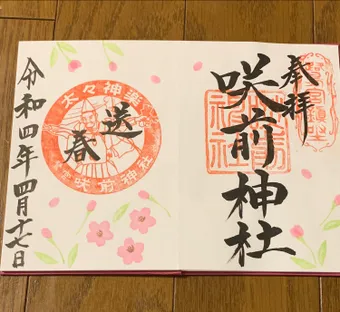 奉拝
咲前神社
太々神楽
送春
咲前神社
令和四年四月十七日